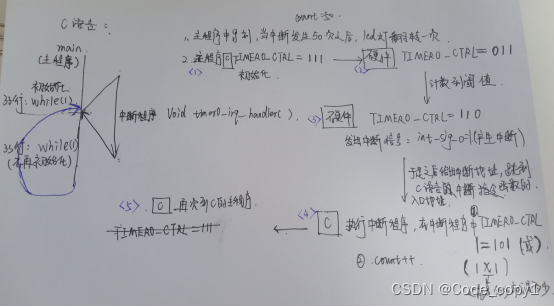 C语言：
count:50.
1. 主程序中导到，当中断发生50次之后，led灯翻转一次
2. 主程序 C TIMER0_CTRL = 111 → 硬件 TIMER0_CTRL = 011
<1> 初始化 <2>
main
(主程序)
初始化
35行：while(1)
35行：while(1)
(不再初始化)
中断程序 Void timer0_irq_handler( ).
计数到阈值
<3> 硬件 TIMER0_CTRL = 110
发出中断信号：int_sig_o=1(产生中断)
于是之后给出中断地址，跳到
C语言的中断 函数的
入口地址.
<4> C 执行中断程序，在中断程序中 ① TIMER0_CTRL
|= 101 (或)
(1 X 1)
② count++
<5>. C 再次到C的主程序.
TIMER0_CTRL = 111
CSDN @Code_copy1